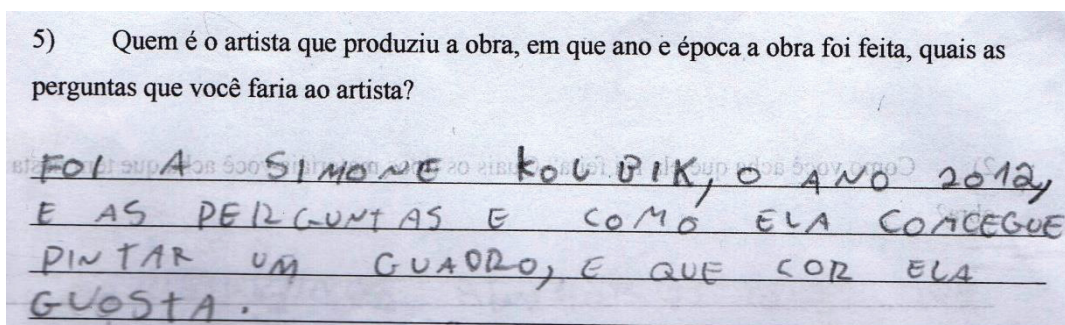 5) Quem é o artista que produziu a obra, em que ano e época a obra foi feita, quais as
perguntas que você faria ao artista?
FOI A SIMONE KOUBIK, O ANO 2012,
E AS PERGUNTAS E COMO ELA CONCEGUE
PINTAR UM GUADRO, E QUE COR ELA
GUOSTA.